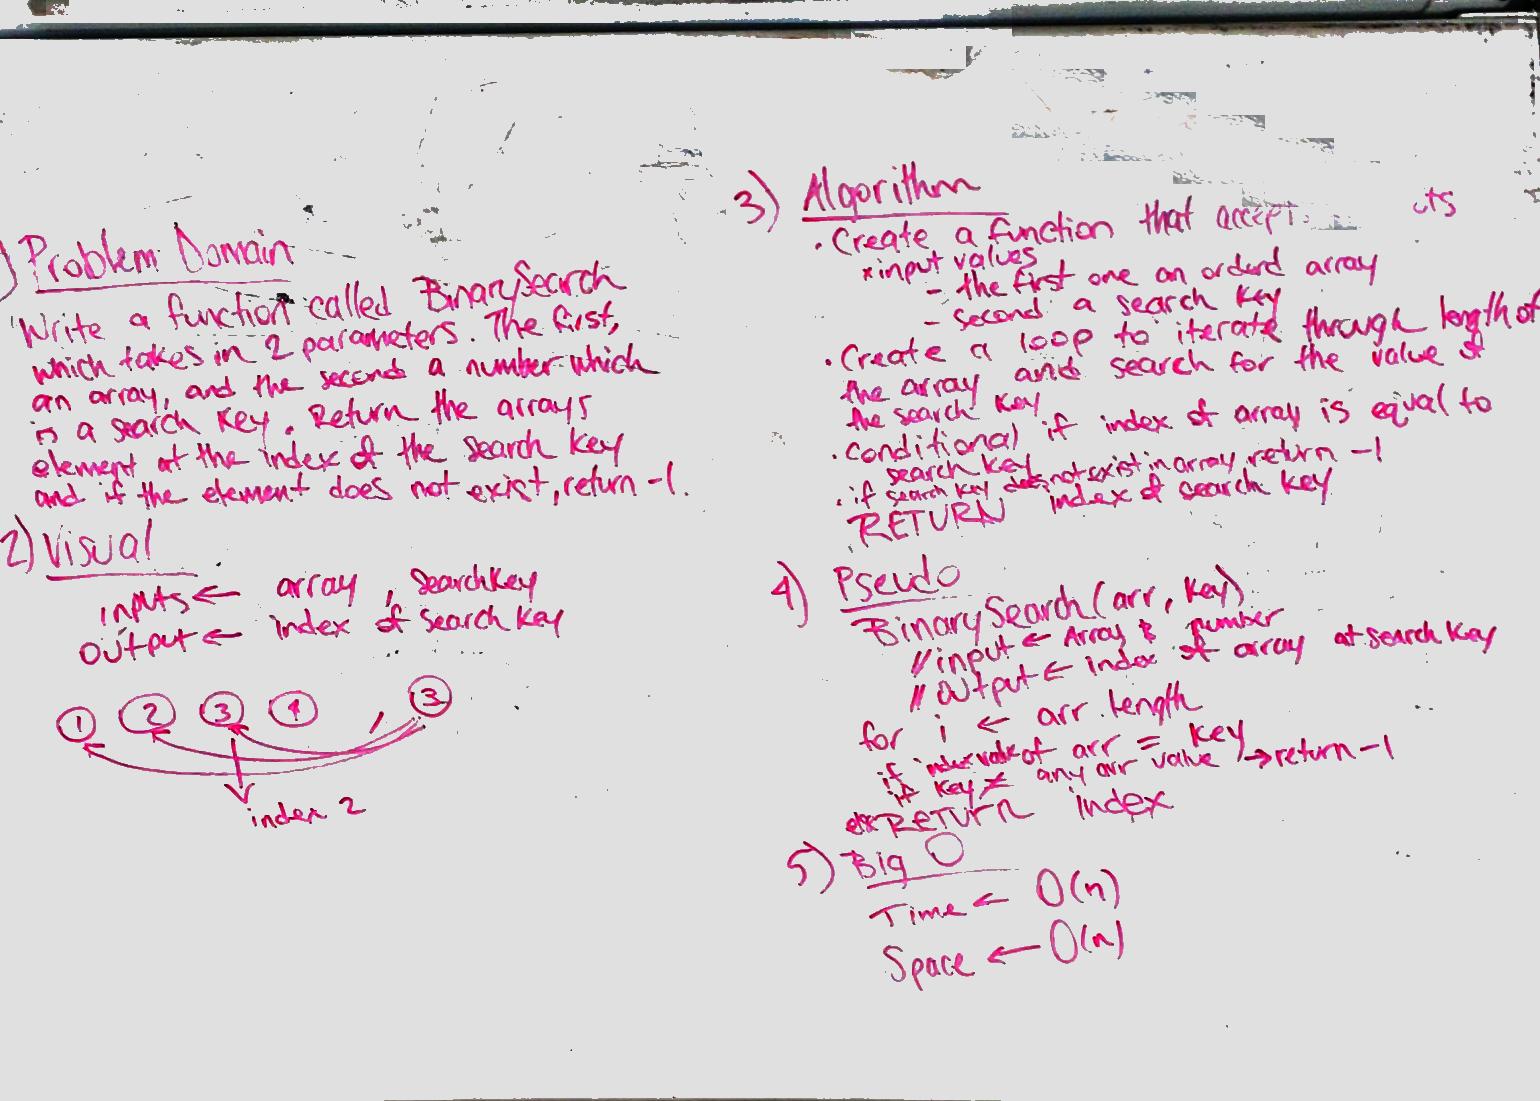 ) Problem Domain
Write a function called BinarySearch
which takes in 2 parameters. The first,
an array, and the second a number which
is a search key. Return the arrays
element at the index of the search key
and if the element does not exist, return -1.
2) Visual
inputs ← array, searchkey
output ← index of search key
1 2 3 4 , 3
index 2
3) Algorithm
• Create a function that accept
* input values
- the first one an orderd array
- second a search key
• Create a loop to iterate through length of
the array and search for the value of
the search key
• Conditional if index of array is equal to
search key
• if search key does not exist in array return -1
RETURN index of search key
4) Pseudo
BinarySearch(arr, key)
// input ← Array & number
// output ← index of array at search key
for i ← arr.length
if index value of arr = key
if key ≠ any arr value → return -1
else RETURN index
5) Big O
Time ← O(n)
Space ← O(n)